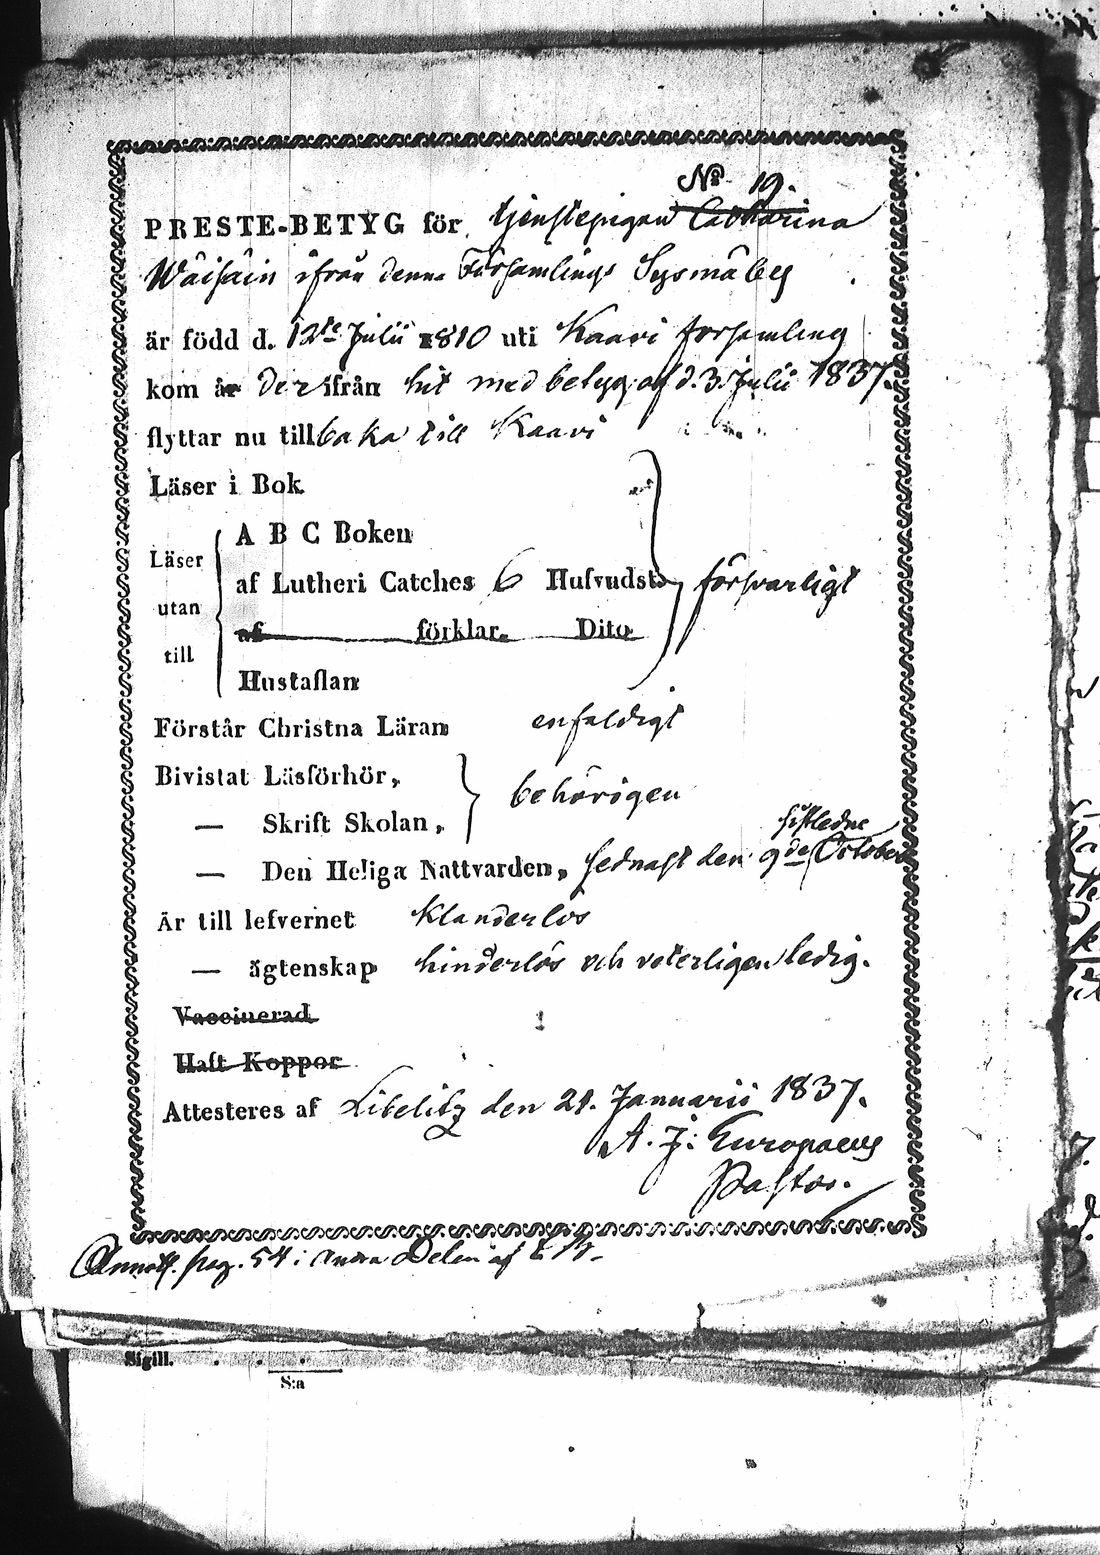 No 19.
PRESTE-BETYG för tjenstepigan Catharina
Wäisäin ifrån denna Församlings Sysmäby
är född d. 12te Julii 1810 uti Kaavi församling
kom år derifrån hit med betyg af d. 3 Julii 1837
flyttar nu tillbaka till Kaavi
Läser i Bok
A B C Boken
Läser utan till
af Lutheri Catches 6 Hufvudst. försvarligt
af förklar. Dito
Hustaflan
Förstår Christna Läran enfaldigt
Bivistat Läsförhör,
behörigen
— Skrift Skolan,
sistledne
— Den Heliga Nattvarden, sednast den 9de October
Är till lefvernet klanderlös
— ägtenskap hinderlös och veterligen ledig.
Vaccinerad
Haft Koppor
Attesteres af Libelitz den 21. Januarii 1837.
A. J: Europaeus
Pastor.
Annott. pag. 54 i andra Delen af
Sigill.
S:a